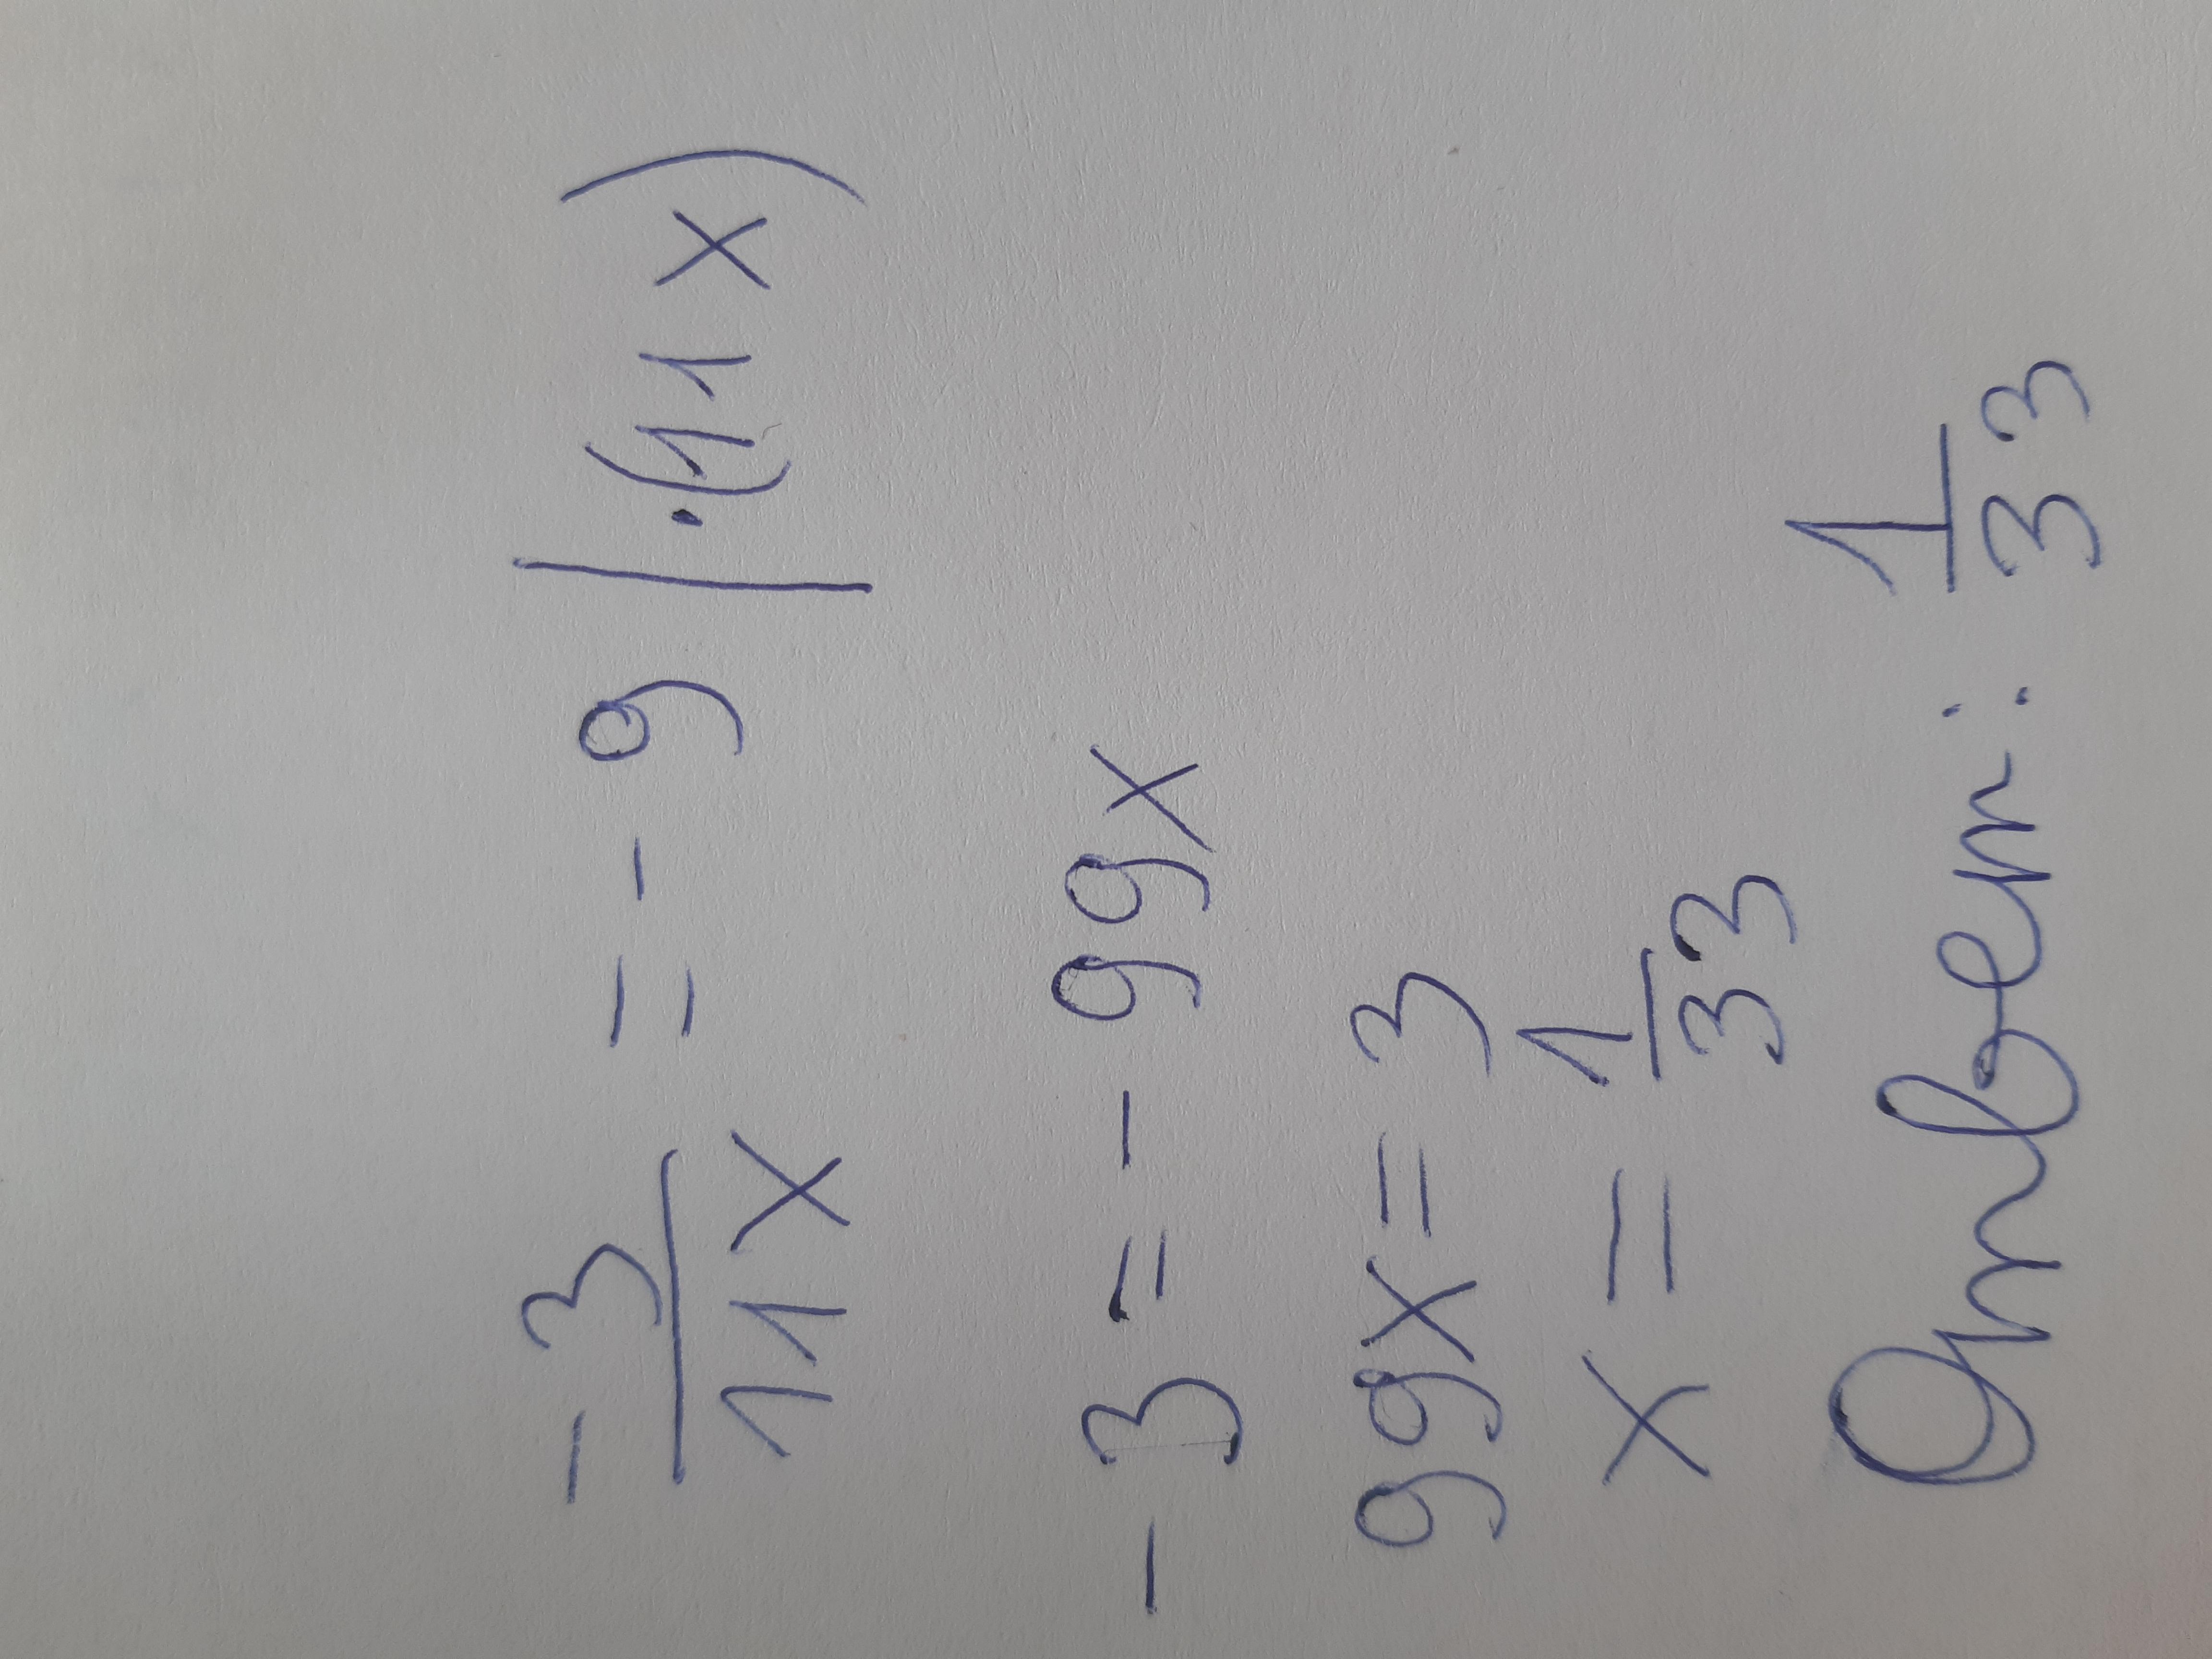 -3/11x = -9 | ·(11x)
-3 = -99x
99x = 3
x = 1/33
Ответ: 1/33